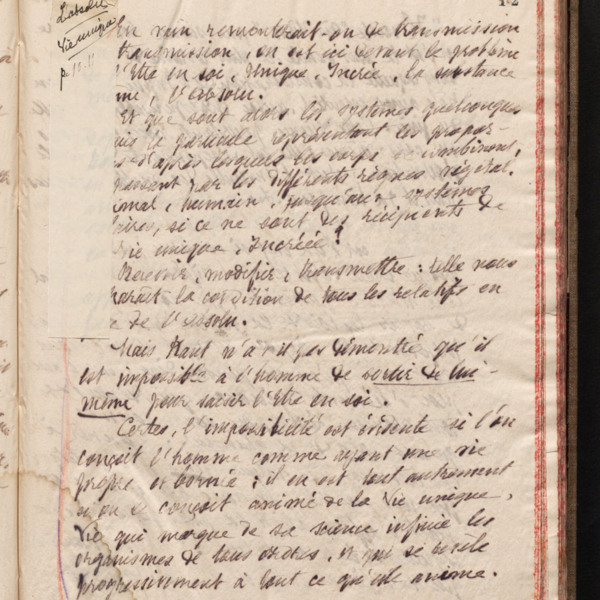 L'absolu
Vie unique
p.
12
En vain remonterait-on de transmission
transmission, on est ici devant le problème
l'Etre en soi, Unique, Incréé, la substance
me, l'Absolu.
Et que sont alors les systèmes quelconques
la particule représentant les propor-
d'après lesquels les corps se combinent,
passant par les différents règnes végétal,
imal, humain, jusqu'aux systèmes
aires, si ce ne sont des récipients de
vie unique, Incréée ?
Recevoir, modifier, transmettre : telle nous
paraît la condition de tous les relatifs en
de l'absolu.
Mais Kant n'a-t-il pas démontré qu'il
est impossible à l'homme de sortir de lui-
même pour saisir l'Etre en soi.
Certes, l'impossibilité est évidente si l'on
conçoit l'homme comme ayant une vie
propre et bornée : il en est tout autrement
si on le conçoit animé de la Vie unique,
Vie qui marque de sa science infinie les
organismes de tous ordres, et qui se révèle
progressivement à tout ce qu'elle anime.